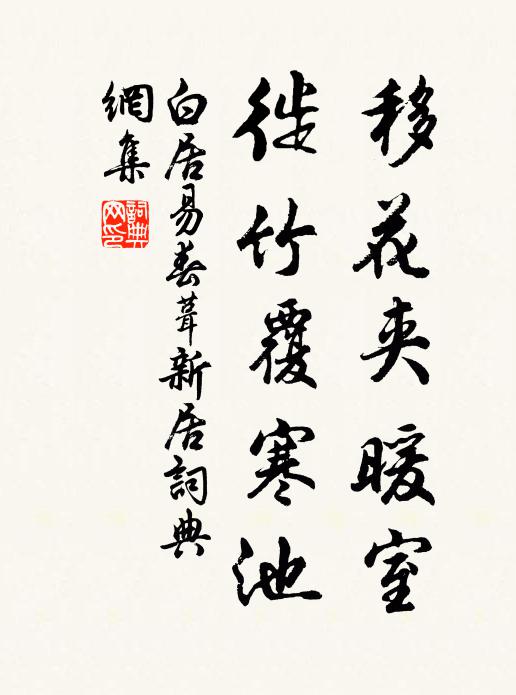 移花夾暖室
徙竹覆寒池
白居易春葺新居詞典
網集
詞典
网印